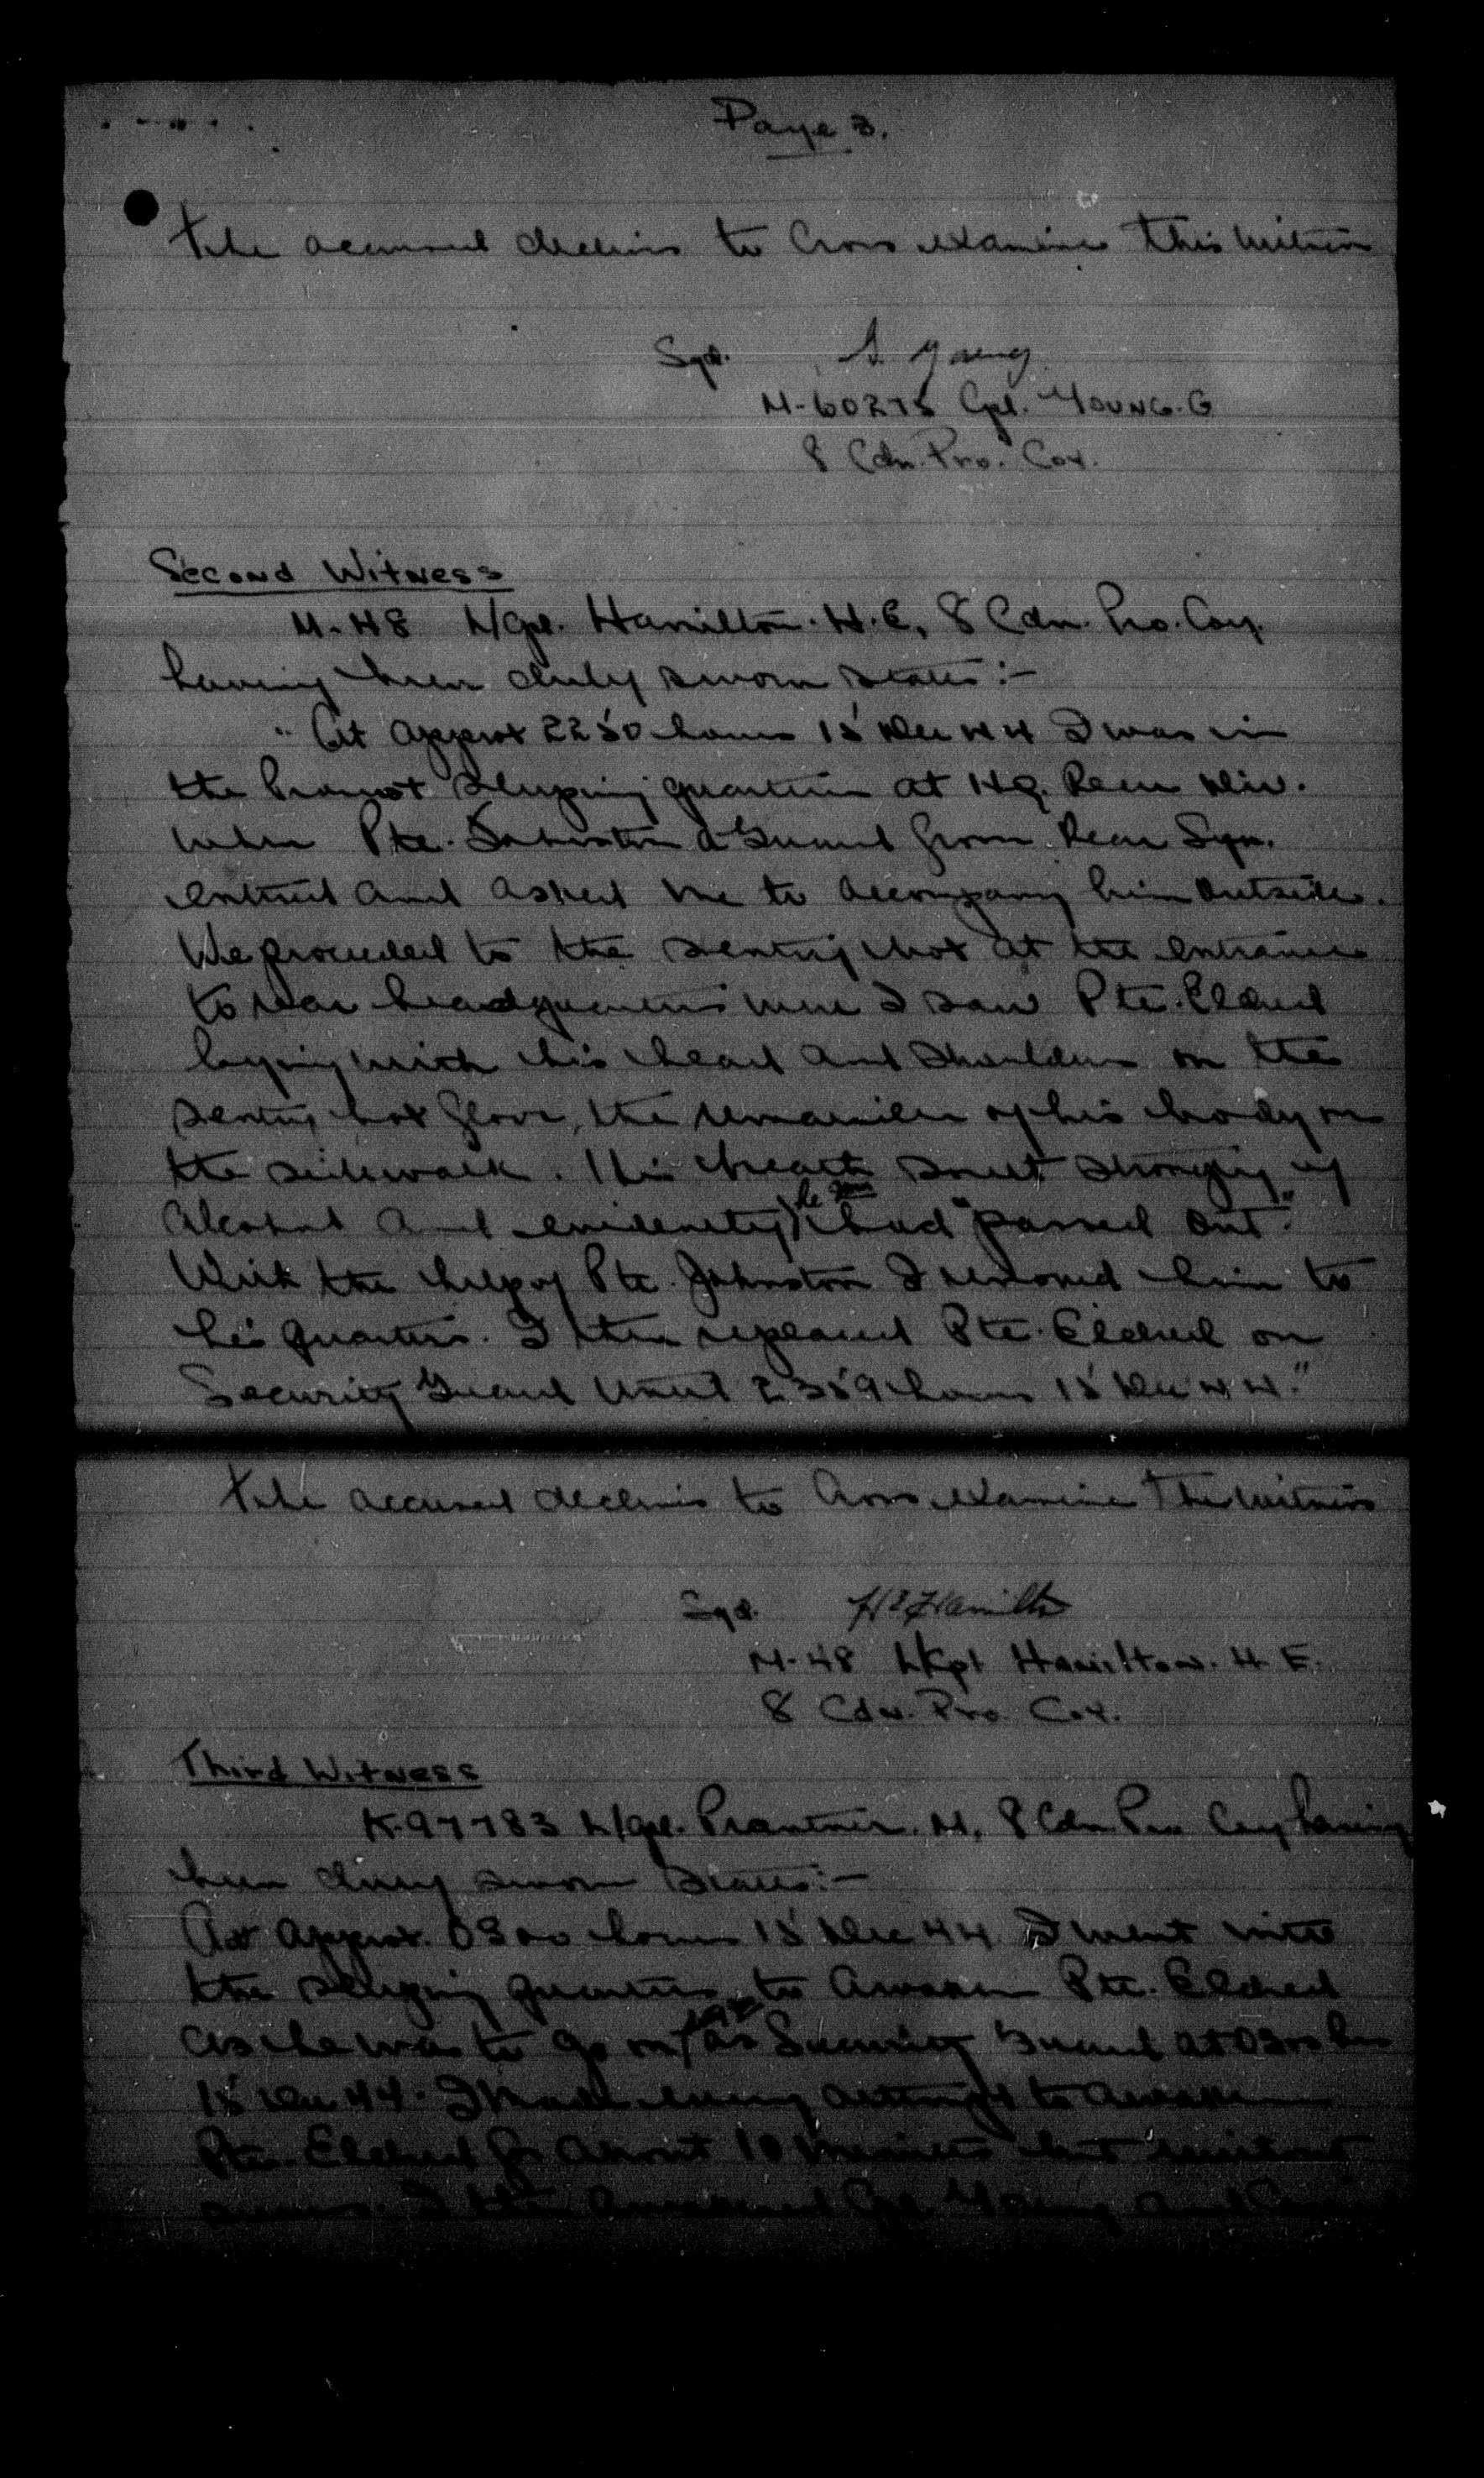 Page 3.
The accused declines to cross examine this witness
Sgd. G. Young
M-60275 Cpl. YOUNG. G
8 Cdn. Pro. Coy.
Second Witness
M-48 L/Cpl. Hamilton. H.E, 8 Cdn. Pro. Coy.
having been duly sworn states:-
"At approx 2250 hours 15 Dec 44 I was in
the Provost sleeping quarters at HQ. Rear Div.
when Pte. Johnston a Guard from Rear
entered and asked me to accompany him outside.
We proceeded to the sentry box at the entrance
to rear headquarters were I saw Pte. Eldred
laying with his head and shoulders on the
sentry box floor, the remainder of his body on
the sidewalk. His breath smelt strongly of
Alcohol and evidently he had "passed out".
With the help of Pte. Johnston I removed him to
his quarters. I then replaced Pte. Eldred on
Security Guard until 2359 hours 15 Dec 44."
The accused declines to cross examine the witness
Sgd. HE Hamilton
M-48 L/Cpl Hamilton. H. E.
8 Cdn. Pro. Coy.
Third Witness
K-97783 L/Cpl. M, 8 Cdn Pro Coy having
been duly sworn states:-
At approx. 0300 hours 15 Dec 44 I went into
the sleeping quarters to awaken Pte. Eldred
as he was to go on as Security Guard at 0300 hrs
15 Dec 44. I made every attempt to awaken
Pte. Eldred for about 10 minutes but without
success. I then awakened Cpl. Young and